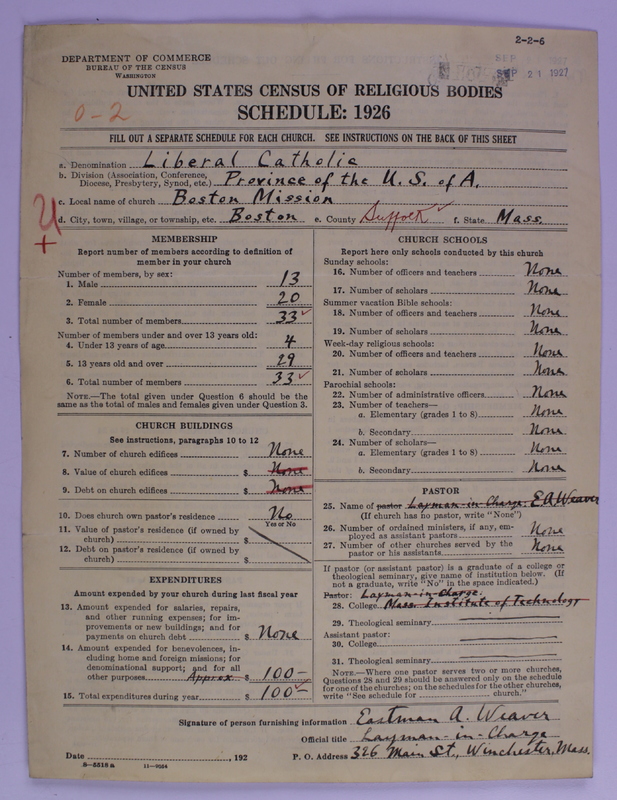 2-2-6
DEPARTMENT OF COMMERCE
BUREAU OF THE CENSUS
WASHINGTON
SEP
SEP 21 1927
UNITED STATES CENSUS OF RELIGIOUS BODIES
SCHEDULE: 1926
0-2
FILL OUT A SEPARATE SCHEDULE FOR EACH CHURCH. SEE INSTRUCTIONS ON THE BACK OF THIS SHEET
a. Denomination Liberal Catholic
b. Division (Association, Conference, Diocese, Presbytery, Synod, etc.) Province of the U. S. of A.
c. Local name of church Boston Mission
d. City, town, village, or township, etc. Boston e. County Suffolk ✓ f. State Mass.
MEMBERSHIP
Report number of members according to definition of
member in your church
Number of members, by sex:
1. Male 13
2. Female 20
3. Total number of members 33 ✓
Number of members under and over 13 years old:
4. Under 13 years of age 4
5. 13 years old and over 29
6. Total number of members 33 ✓
NOTE.—The total given under Question 6 should be the
same as the total of males and females given under Question 3.
CHURCH BUILDINGS
See instructions, paragraphs 10 to 12
7. Number of church edifices None
8. Value of church edifices $ None
9. Debt on church edifices $ None
10. Does church own pastor's residence No
Yes or No
11. Value of pastor's residence (if owned by
church) $
12. Debt on pastor's residence (if owned by
church) $
EXPENDITURES
Amount expended by your church during last fiscal year
13. Amount expended for salaries, repairs,
and other running expenses; for im-
provements or new buildings; and for
payments on church debt $ None
14. Amount expended for benevolences, in-
cluding home and foreign missions; for
denominational support; and for all
other purposes Approx. $ 100—
15. Total expenditures during year $ 100—
CHURCH SCHOOLS
Report here only schools conducted by this church
Sunday schools:
16. Number of officers and teachers None
17. Number of scholars None
Summer vacation Bible schools:
18. Number of officers and teachers None
19. Number of scholars None
Week-day religious schools:
20. Number of officers and teachers None
21. Number of scholars None
Parochial schools:
22. Number of administrative officers None
23. Number of teachers—
a. Elementary (grades 1 to 8) None
b. Secondary None
24. Number of scholars—
a. Elementary (grades 1 to 8) None
b. Secondary None
PASTOR
25. Name of pastor Layman-in-Charge: E A Weaver
(If church has no pastor, write "None")
26. Number of ordained ministers, if any, em-
ployed as assistant pastors None
27. Number of other churches served by the
pastor or his assistants None
If pastor (or assistant pastor) is a graduate of a college or
theological seminary, give name of institution below. (If
not a graduate, write "No" in the space indicated.)
Pastor: Layman-in-Charge:
28. College Mass. Institute of Technology
29. Theological seminary
Assistant pastor:
30. College
31. Theological seminary
NOTE.—Where one pastor serves two or more churches,
Questions 28 and 29 should be answered only on the schedule
for one of the churches; on the schedules for the other churches,
write "See schedule for church."
Signature of person furnishing information Eastman A. Weaver
Official title Layman-in-Charge
Date , 192 P. O. Address 326 Main St., Winchester, Mass.
8-5518a 11-9364